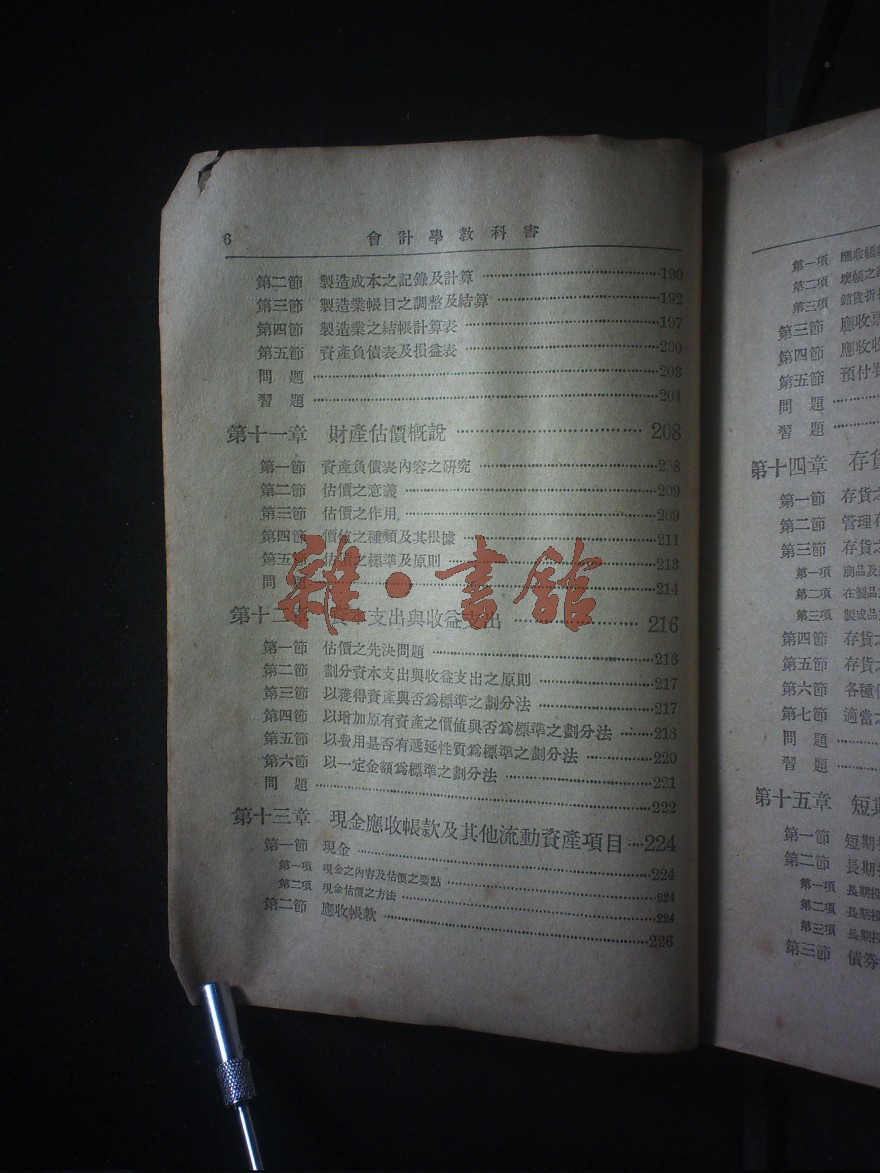 6 會計學教科書
第二節 製造成本之記錄及計算 190
第三節 製造業帳目之調整及結算 192
第四節 製造業之結帳計算表 197
第五節 資產負債表及損益表 200
問題 203
習題 204
第十一章 財產估價槪說 208
第一節 資產負債表內容之硏究 2 8
第二節 估價之意義 209
第三節 估價之作用 209
第四節 價值之種類及其根據 211
第五節 估價之標準及原則 213
問 214
第十二 支出與收益支出 216
第一節 估價之先決問題 216
第二節 劃分資本支出與收益支出之原則 217
第三節 以獲得資產與否爲標準之劃分法 217
第四節 以增加原有資產之價值與否爲標準之劃分法 218
第五節 以費用是否有遞延性質爲標準之劃分法 220
第六節 以一定金額爲標準之劃分法 221
問題 222
第十三章 現金應收帳款及其他流動資產項目 224
第一節 現金 224
第一項 現金之內容及估價之要點 224
第二項 現金估價之方法 224
第二節 應收帳款 226
雜·書館
第一項 應收帳
第二項 壞帳之
第三項 銷貨折
第三節 應收票
第四節 應收
第五節 預付
問題
習題
第十四章 存貨
第一節 存貨之
第二節 管理存
第三節 存貨之
第一項 商品及
第二項 在製品
第三項 製成品
第四節 存貨之
第五節 存貨之
第六節 各種
第七節 適當之
問題
習題
第十五章 短期
第一節 短期
第二節 長期
第一項 長期投
第二項 長期投
第三項 長期投
第三節 債券